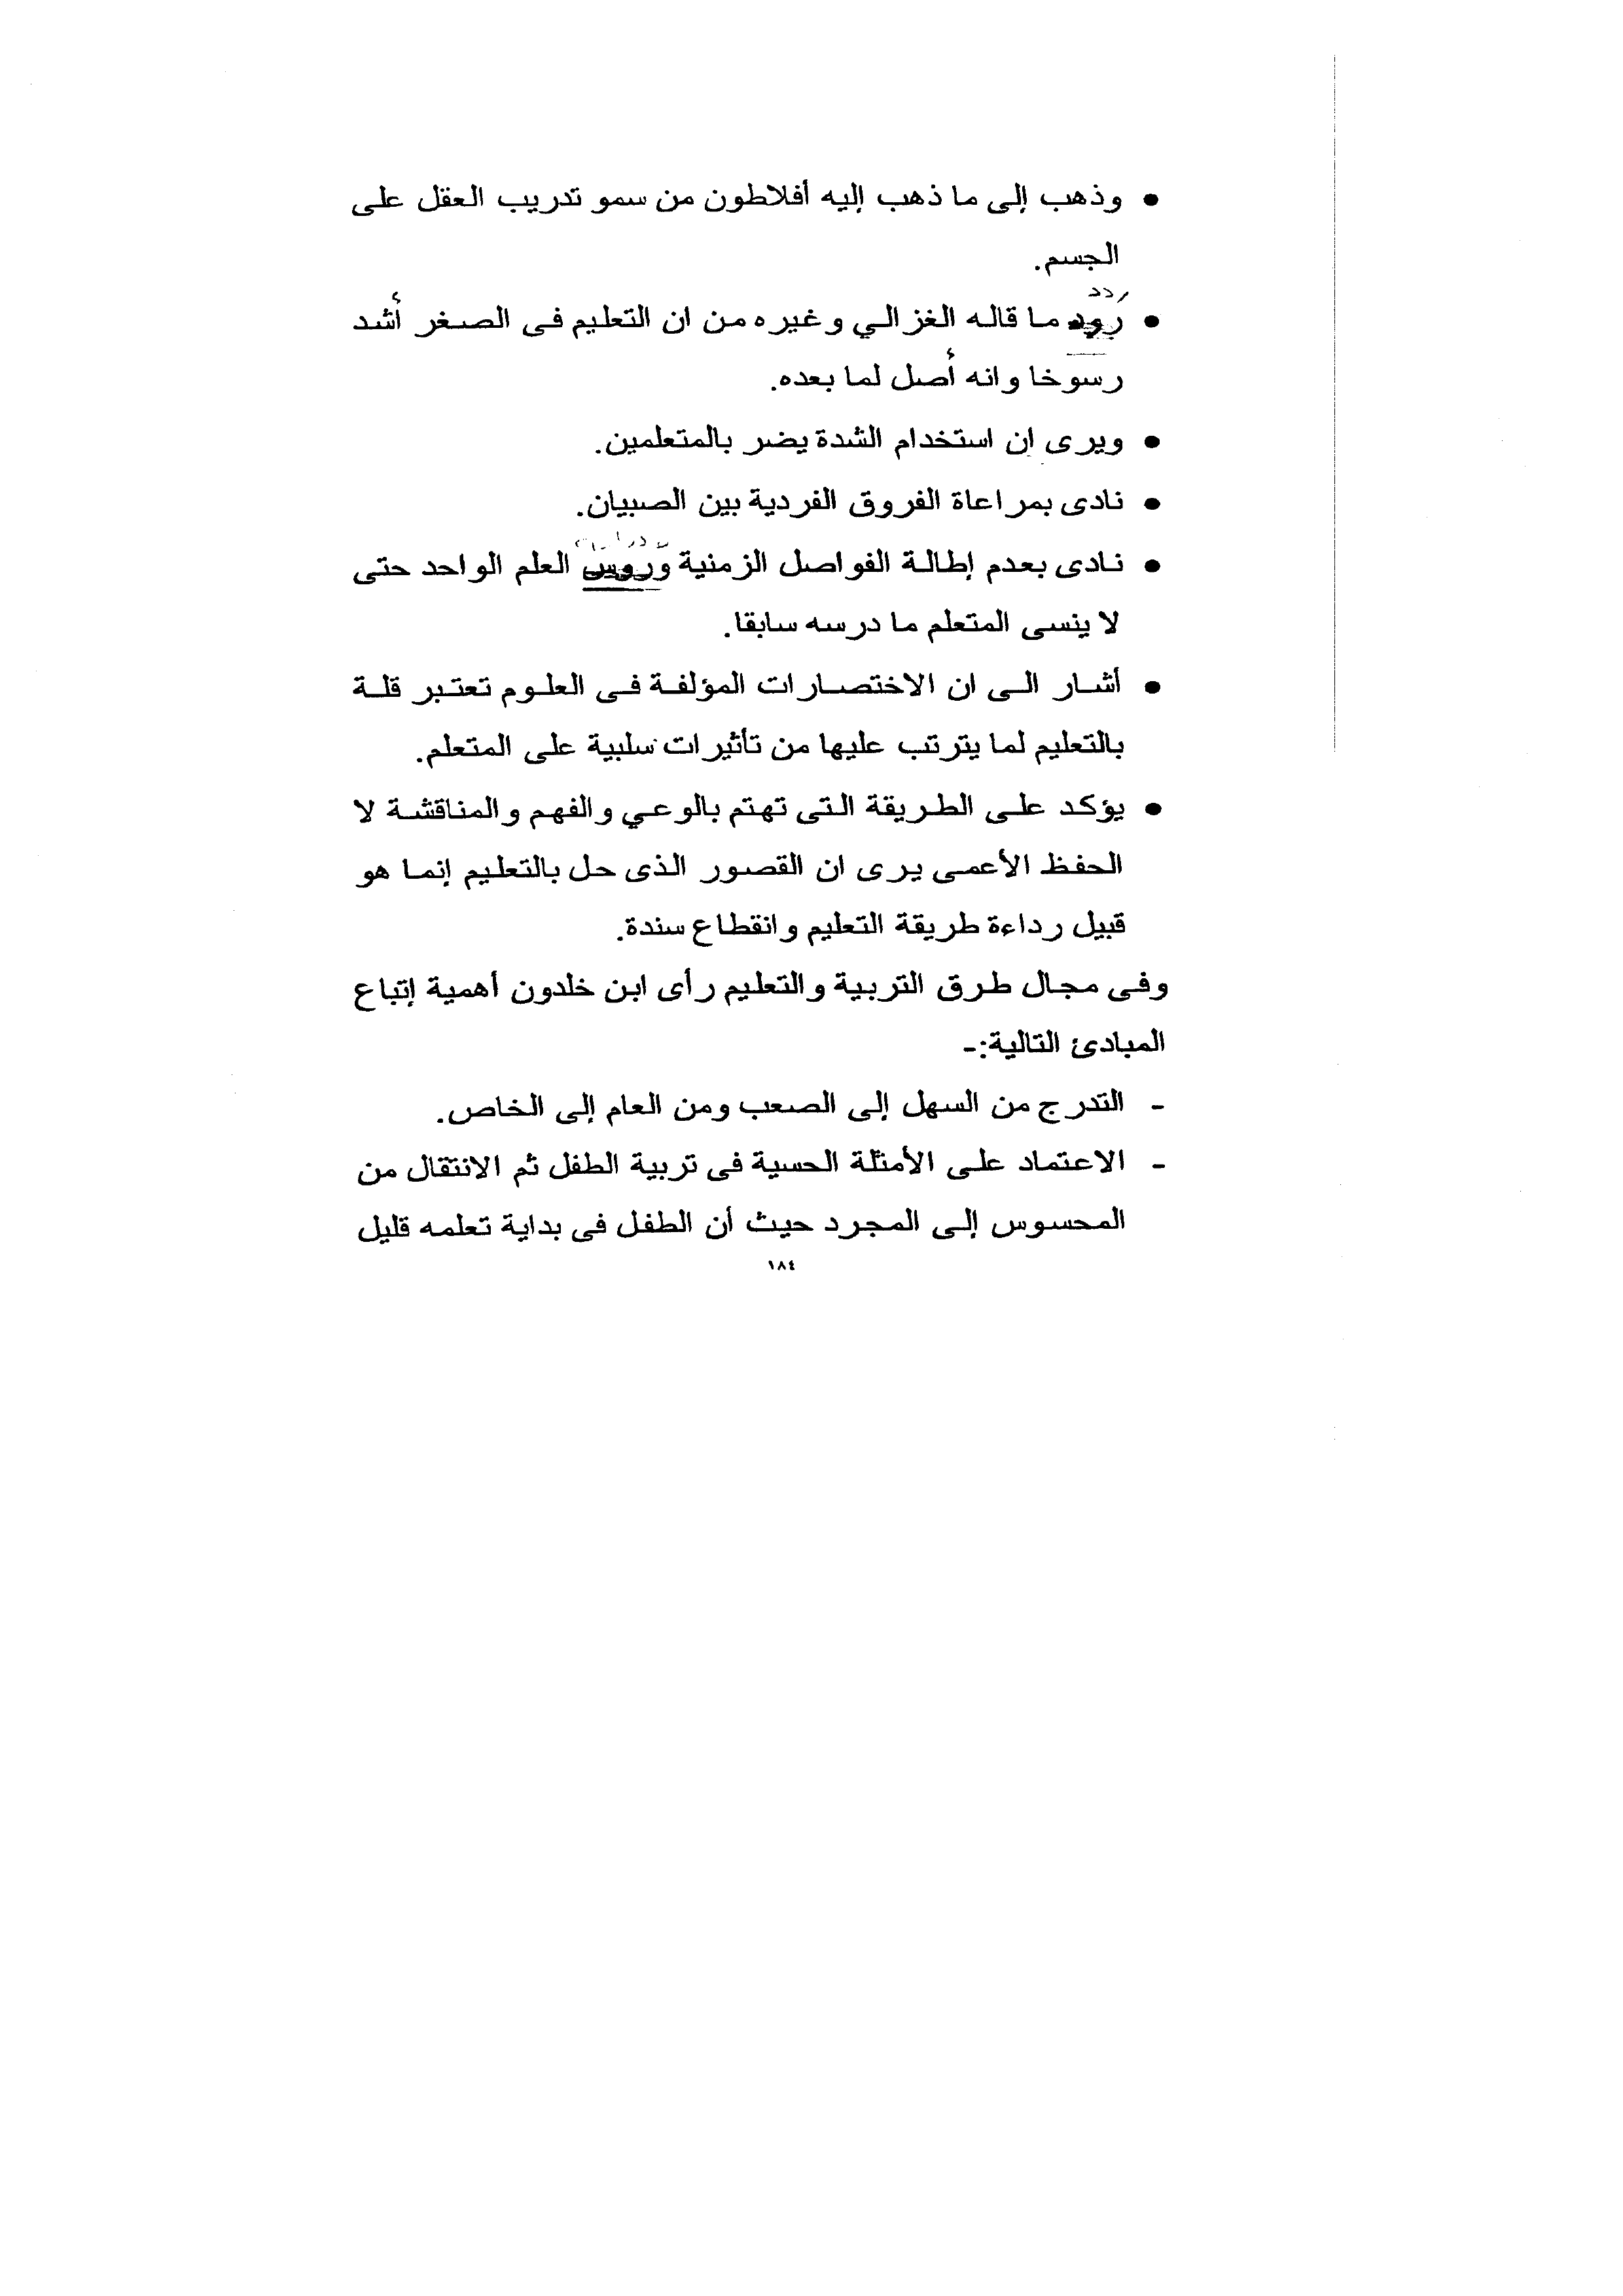 • وذهب إلى ما ذهب إليه أفلاطون من سمو تدريب العقل على
الجسم.
ردد
• ما قاله الغزالي وغيره من ان التعليم فى الصغر أشد
رسوخا وانه أصل لما بعده.
• ويرى ان استخدام الشدة يضر بالمتعلمين.
• نادى بمراعاة الفروق الفردية بين الصبيان.
• نادى بعدم إطالة الفواصل الزمنية العلم الواحد حتى
لا ينسى المتعلم ما درسه سابقا.
• أشار الى ان الاختصارات المؤلفة فى العلوم تعتبر قلة
بالتعليم لما يترتب عليها من تأثيرات سلبية على المتعلم.
• يؤكد على الطريقة التى تهتم بالوعي والفهم والمناقشة لا
الحفظ الأعمى يرى ان القصور الذى حل بالتعليم إنما هو
قبيل رداءة طريقة التعليم وانقطاع سندة.
وفى مجال طرق التربية والتعليم رأى ابن خلدون أهمية إتباع
المبادئ التالية:-
- التدرج من السهل إلى الصعب ومن العام إلى الخاص.
- الاعتماد على الأمثلة الحسية فى تربية الطفل ثم الانتقال من
المحسوس إلى المجرد حيث أن الطفل فى بداية تعلمه قليل
١٨٤